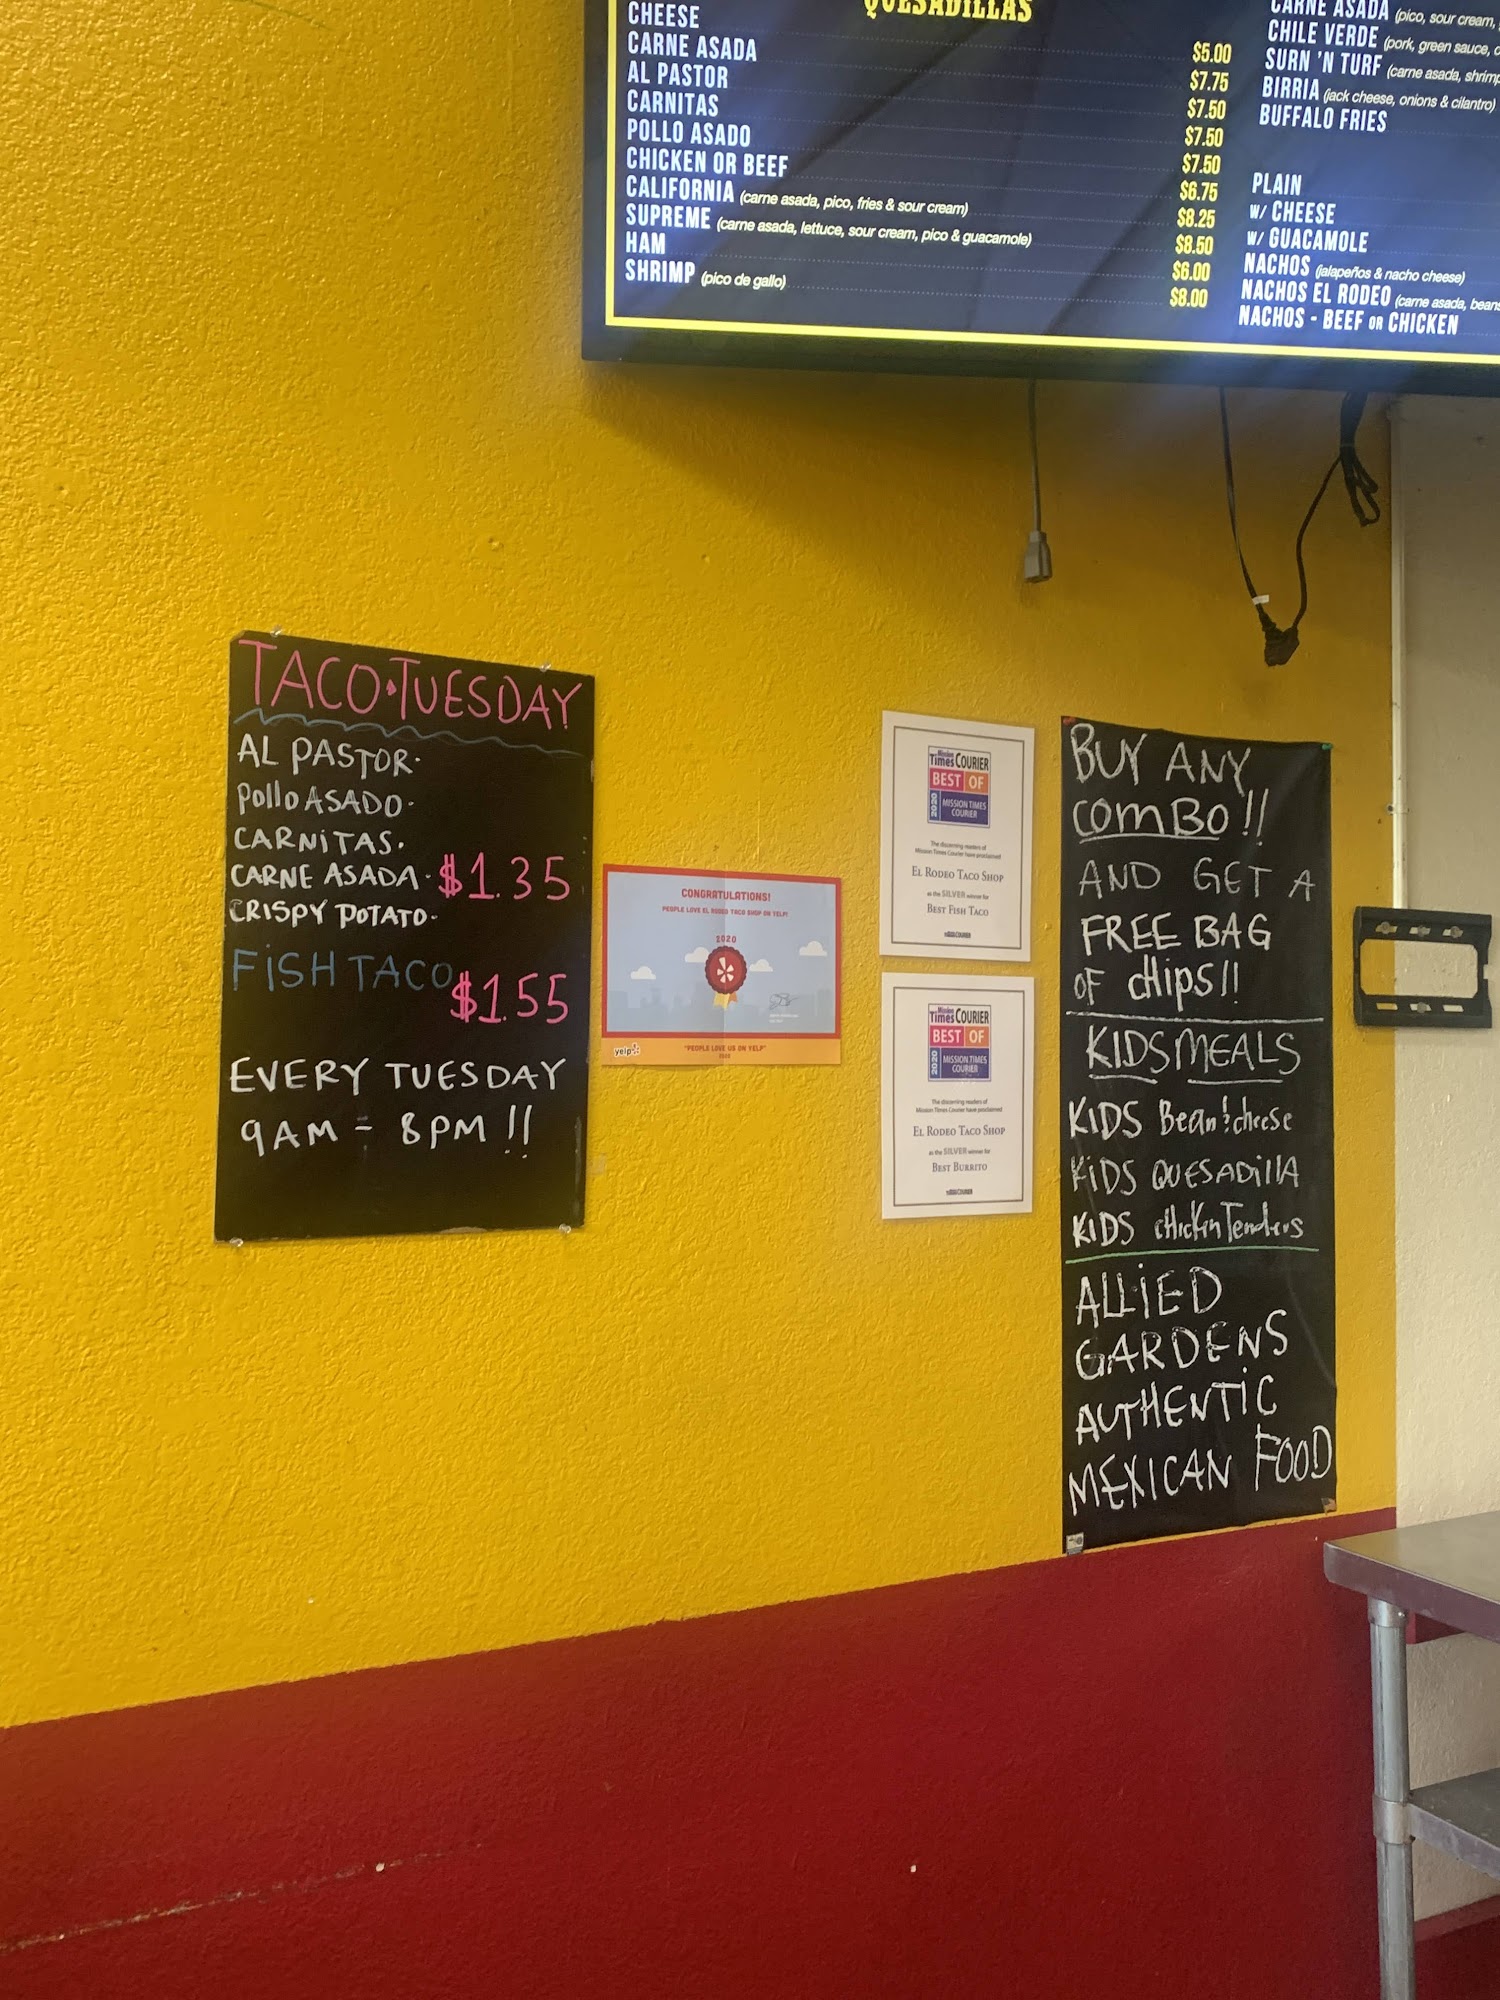 QUESADILLAS
CHEESE $5.00
CARNE ASADA $7.75
AL PASTOR $7.50
CARNITAS $7.50
POLLO ASADO $7.50
CHICKEN OR BEEF $6.75
CALIFORNIA (carne asada, pico, fries & sour cream) $8.25
SUPREME (carne asada, lettuce, sour cream, pico & guacamole) $8.50
HAM $6.00
SHRIMP (pico de gallo) $8.00
CARNE ASADA (pico, sour cream,
CHILE VERDE (pork, green sauce,
SURN 'N TURF (carne asada, shrimp
BIRRIA (jack cheese, onions & cilantro)
BUFFALO FRIES
PLAIN
W/ CHEESE
W/ GUACAMOLE
NACHOS (jalapeños & nacho cheese)
NACHOS EL RODEO (carne asada, beans
NACHOS - BEEF OR CHICKEN
TACO TUESDAY
AL PASTOR
POLLO ASADO
CARNITAS.
CARNE ASADA $1.35
CRISPY POTATO
FISH TACO $1.55
EVERY TUESDAY
9AM - 8PM !!
CONGRATULATIONS!
PEOPLE LOVE EL RODEO TACO SHOP ON YELP!
2020
yelp
"PEOPLE LOVE US ON YELP"
2020
Mission
Times COURIER
BEST OF
2020 MISSION TIMES
COURIER
The discerning readers of
Mission Times Courier have proclaimed
EL RODEO TACO SHOP
as the SILVER winner for
BEST FISH TACO
Mission
Times COURIER
BEST OF
2020 MISSION TIMES
COURIER
The discerning readers of
Mission Times Courier have proclaimed
EL RODEO TACO SHOP
as the SILVER winner for
BEST BURRITO
BUY ANY
COMBO!!
AND GET A
FREE BAG
OF CHIPS!!
KIDS MEALS
KIDS Bean & cheese
KIDS QUESADILLA
KIDS chicken Tenders
ALLIED
GARDENS
AUTHENTIC
MEXICAN FOOD